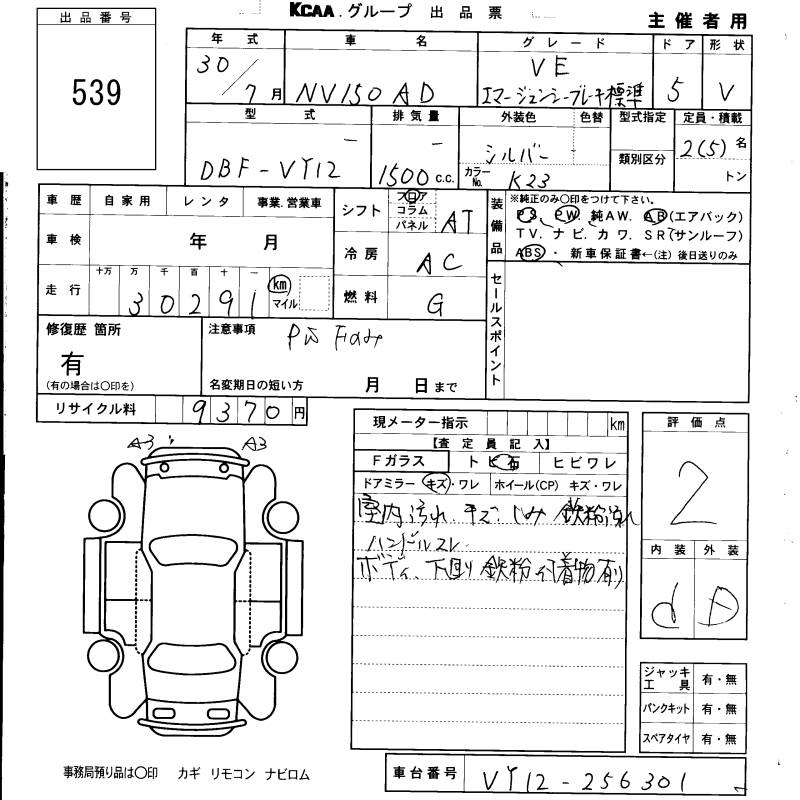 KCAA.グループ 出品票
主催者用
出品番号
539
年式 車名 グレード ドア 形状
30/7月 NV150 AD VE エマージェンシーブレーキ標準 5 V
型式 排気量 外装色 色替 型式指定 定員・積載
DBF-VY12 1500c.c. シルバー カラーNo. K23 類別区分 2(5)名 トン
車歴 自家用 レンタ 事業.営業車
車検 年 月
走行 十万 万 千 百 十 一
30291 km マイル
シフト フロア コラム パネル AT
冷房 AC
燃料 G
装備品 ※純正のみ〇印をつけて下さい。
PS、PW、純AW、AB(エアバック)
TV、ナビ、カワ、SR(サンルーフ)
ABS・新車保証書←(注)後日送りのみ
セールスポイント
修復歴 箇所
有
(有の場合は〇印を)
注意事項
名変期日の短い方 月 日まで
リサイクル料 9370円
現メーター指示 km
【査定員記入】
Fガラス トビ石 ヒビワレ
ドアミラー キズ・ワレ ホイール(CP) キズ・ワレ
室内汚れ、キズ、しみ 鉄粉汚れ
ハンドルスレ
ボディ、下回り鉄粉付着物有り
評価点
2
内装 外装
d D
A3 A3
ジャッキ工具 有・無
パンクキット 有・無
スペアタイヤ 有・無
事務局預り品は〇印 カギ リモコン ナビロム
車台番号 VY12-256301